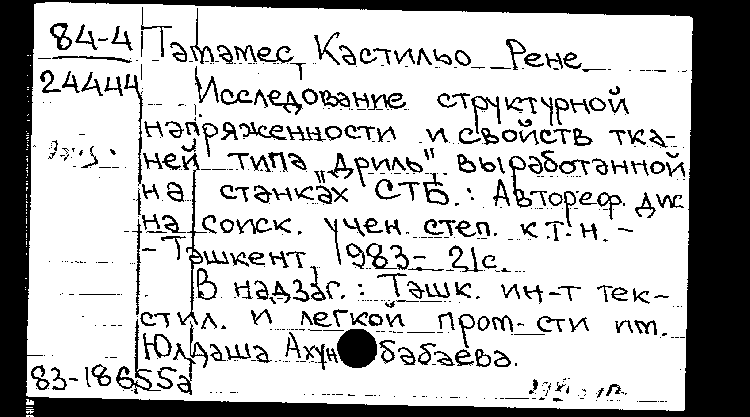 84-4
24444
Тамамес Кастильо Рене
Исследование структурной
напряженности и свойств тка-
ней типа "дриль", выработанной
на станках СТБ.: Автореф. дис
на соиск. учен. степ. к.т.н. -
- Ташкент, 1983.- 21с.
В надзаг.: Ташк. ин-т тек-
стил. и легкой пром-сти им.
Юлдаша Ахунбабаева.
83-18655а